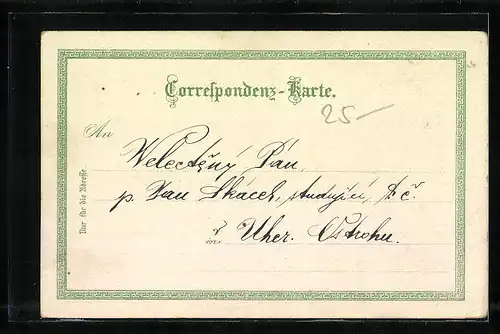 Correspondenz-Karte.
25-
An
Velectěný Pán,
p. Jan Skácel, studující, t. č.
v in Uher. Ostrohu.
Nur für die Adresse.